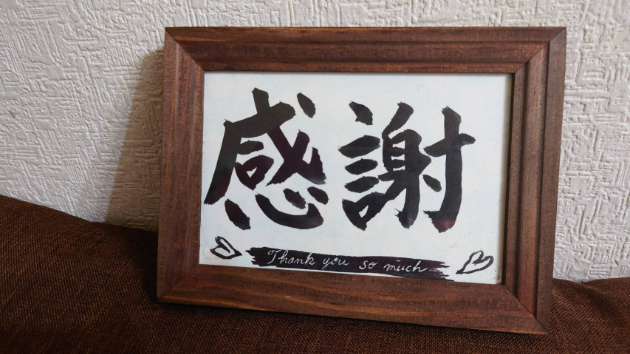 感謝
Thank you so much